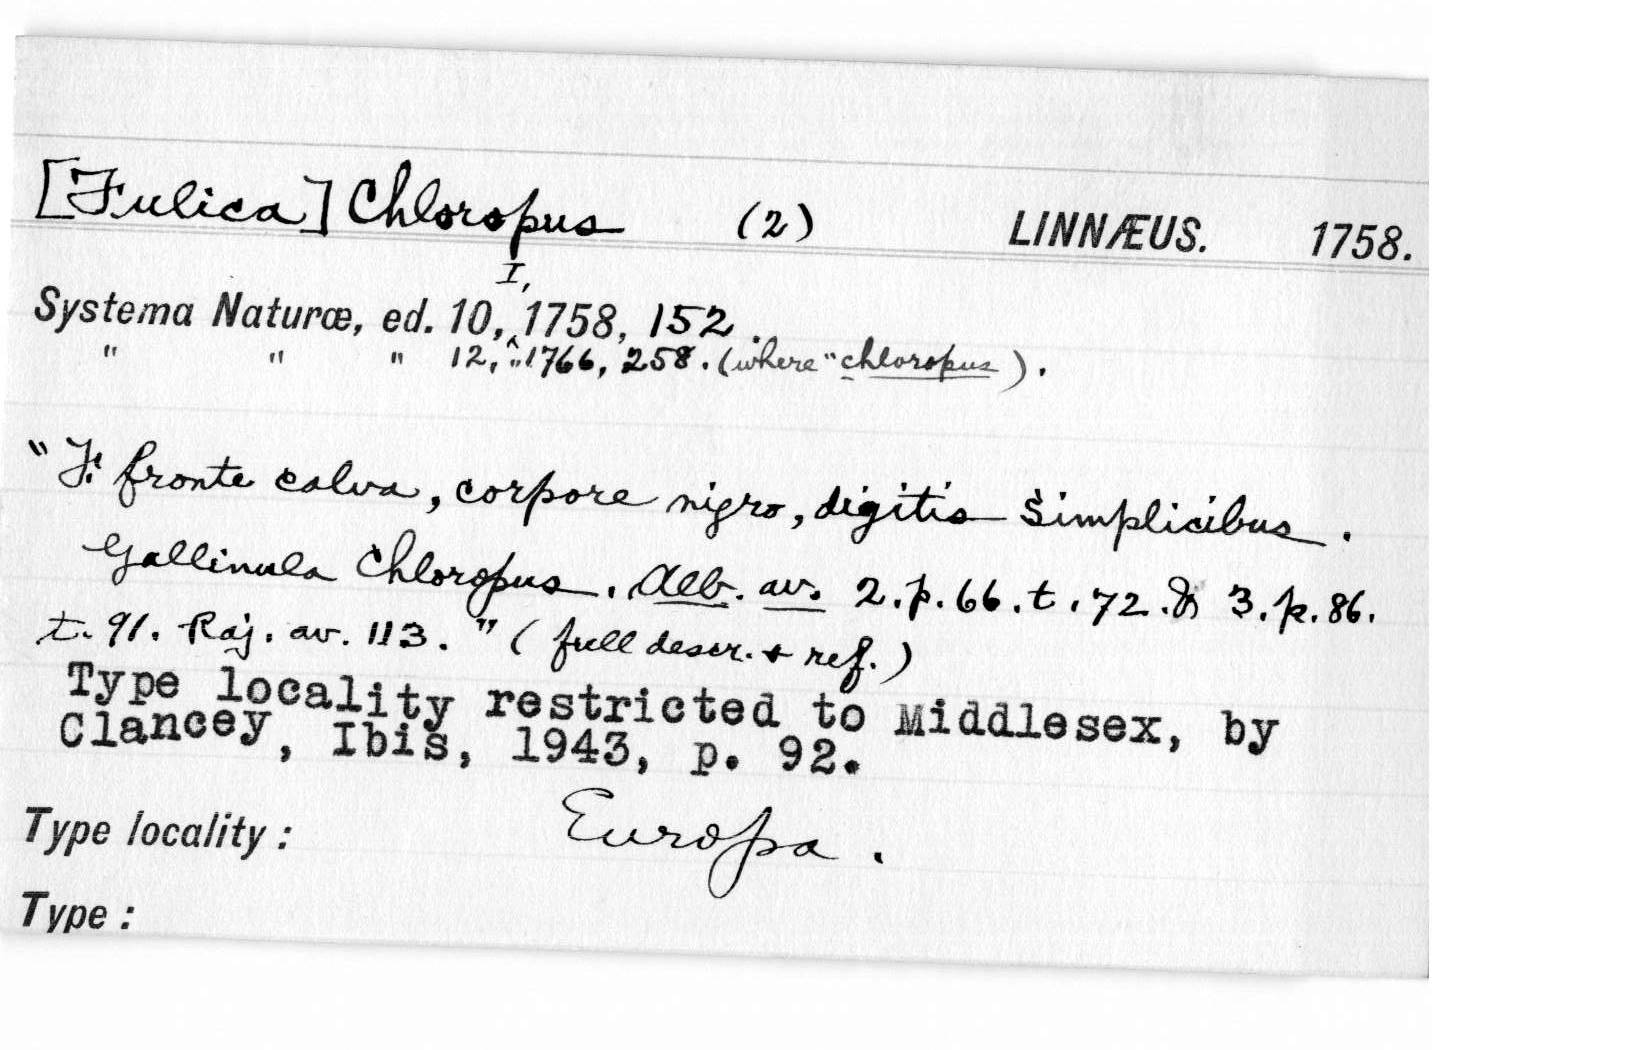 [Fulica] Chloropus (2) LINNÆUS. 1758.
I,
Systema Naturæ, ed. 10, 1758, 152.
" " " 12, " 1766, 258. (where "chloropus).
"F. fronte calva, corpore nigro, digitis simplicibus.
Gallinula Chloropus. Alb. av. 2. p. 66. t. 72. & 3. p. 86.
t. 91. Raj. av. 113." (full descr. + ref.)
Type locality restricted to Middlesex, by
Clancey, Ibis, 1943, p. 92.
Type locality: Europa.
Type: